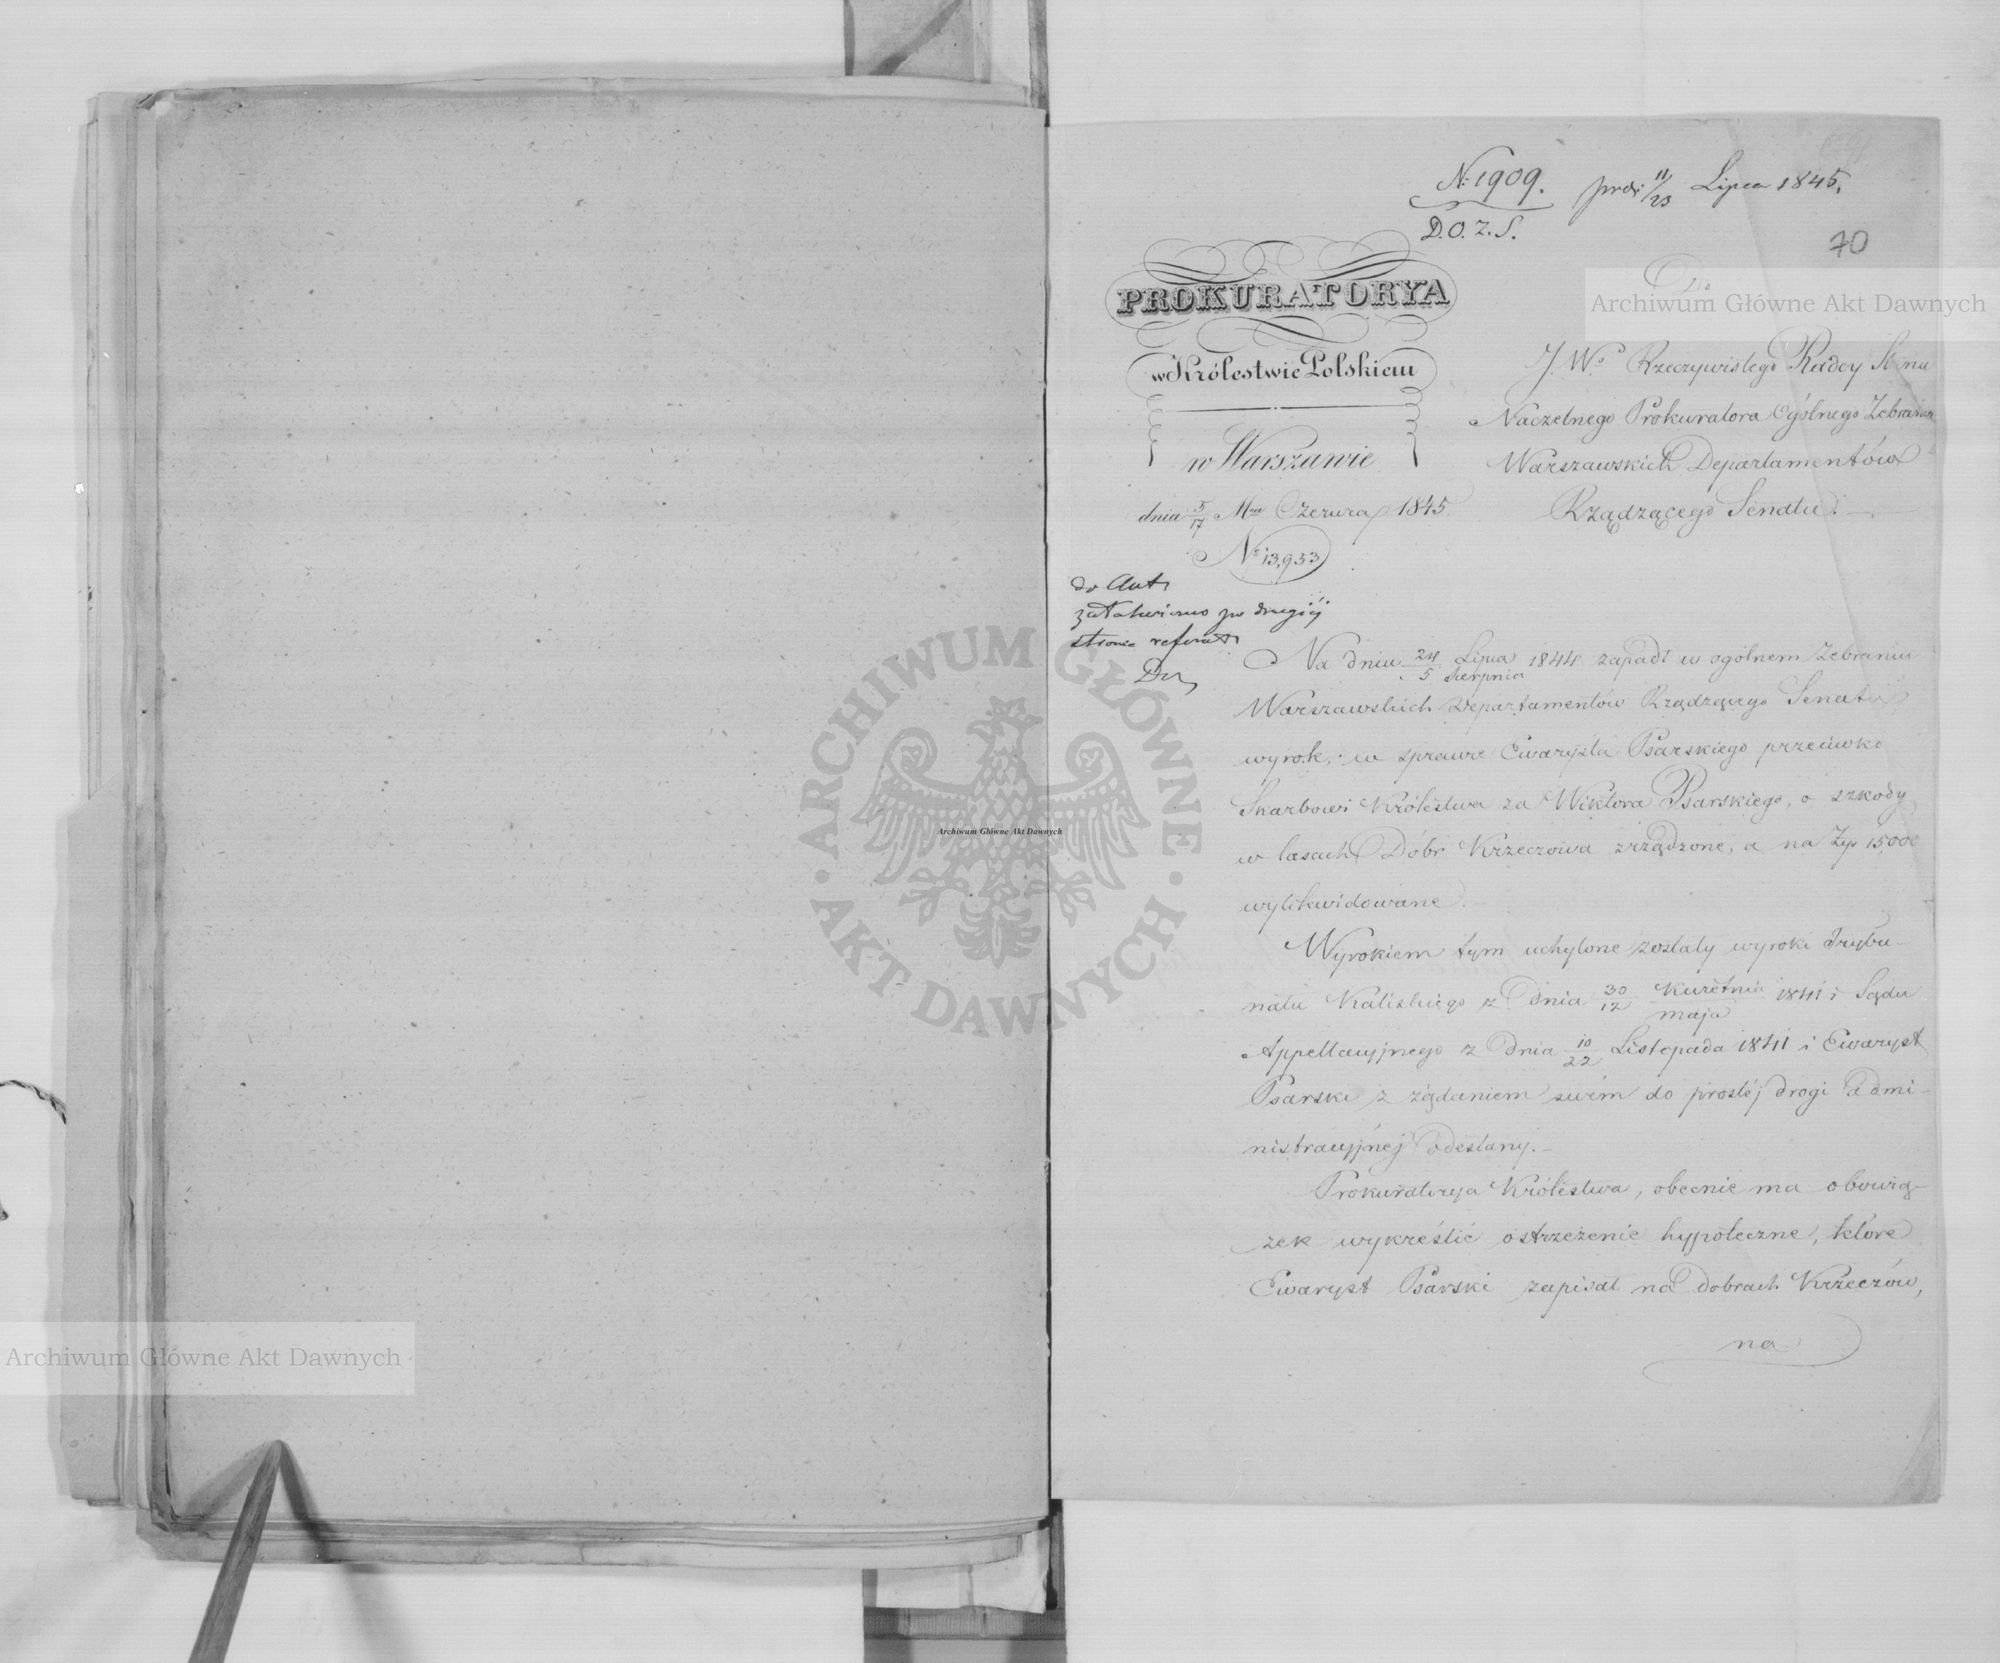 N: 1909.
D.O.Z.S.
prez: 11/23 Lipca 1845.
70
PROKURATORYA
w Królestwie Polskiem
w Warszawie
dnia 5/17 Mca Czerwca 1845.
No 13,953
Do
J. Wo Rzeczywistego Radcy Stanu
Naczelnego Prokuratora Ogólnego Zebrania
Warszawskich Departamentów
Rządzącego Senatu.
do Akt
załatwiono po drugiéj
stronie referat
Na dniu 24 Lipca / 5 Sierpnia 1844 zapadł w ogólnem Zebraniu
Warszawskich Departamentów Rządzącego Senatu
wyrok, w sprawie Ewarysta Psarskiego przeciwko
Skarbowi Królestwa za Wiktora Psarskiego, o szkody
w lasach Dóbr Krzeczowa zrządzone, a na Złp 15,000
wylikwidowane.
Wyrokiem tym uchylone zostały wyroki Trybu-
nału Kaliskiego z Dnia 30 Kwietnia / 12 maja 1841 i Sądu
Appellacyjnego z Dnia 10/22 Listopada 1841 i Ewaryst
Psarski z żądaniem swém do prostéj drogi Admi-
nistracyjnéj odesłany.
Prokuratorya Królestwa, obecnie ma obowią-
zek wykreślić ostrzeżenie hypoteczne, które
Ewaryst Psarski zapisał na Dobrach Krzeczów,
na
Archiwum Główne Akt Dawnych
Archiwum Główne Akt Dawnych
Archiwum Główne Akt Dawnych
ARCHIWUM GŁÓWNE · AKT DAWNYCH ·